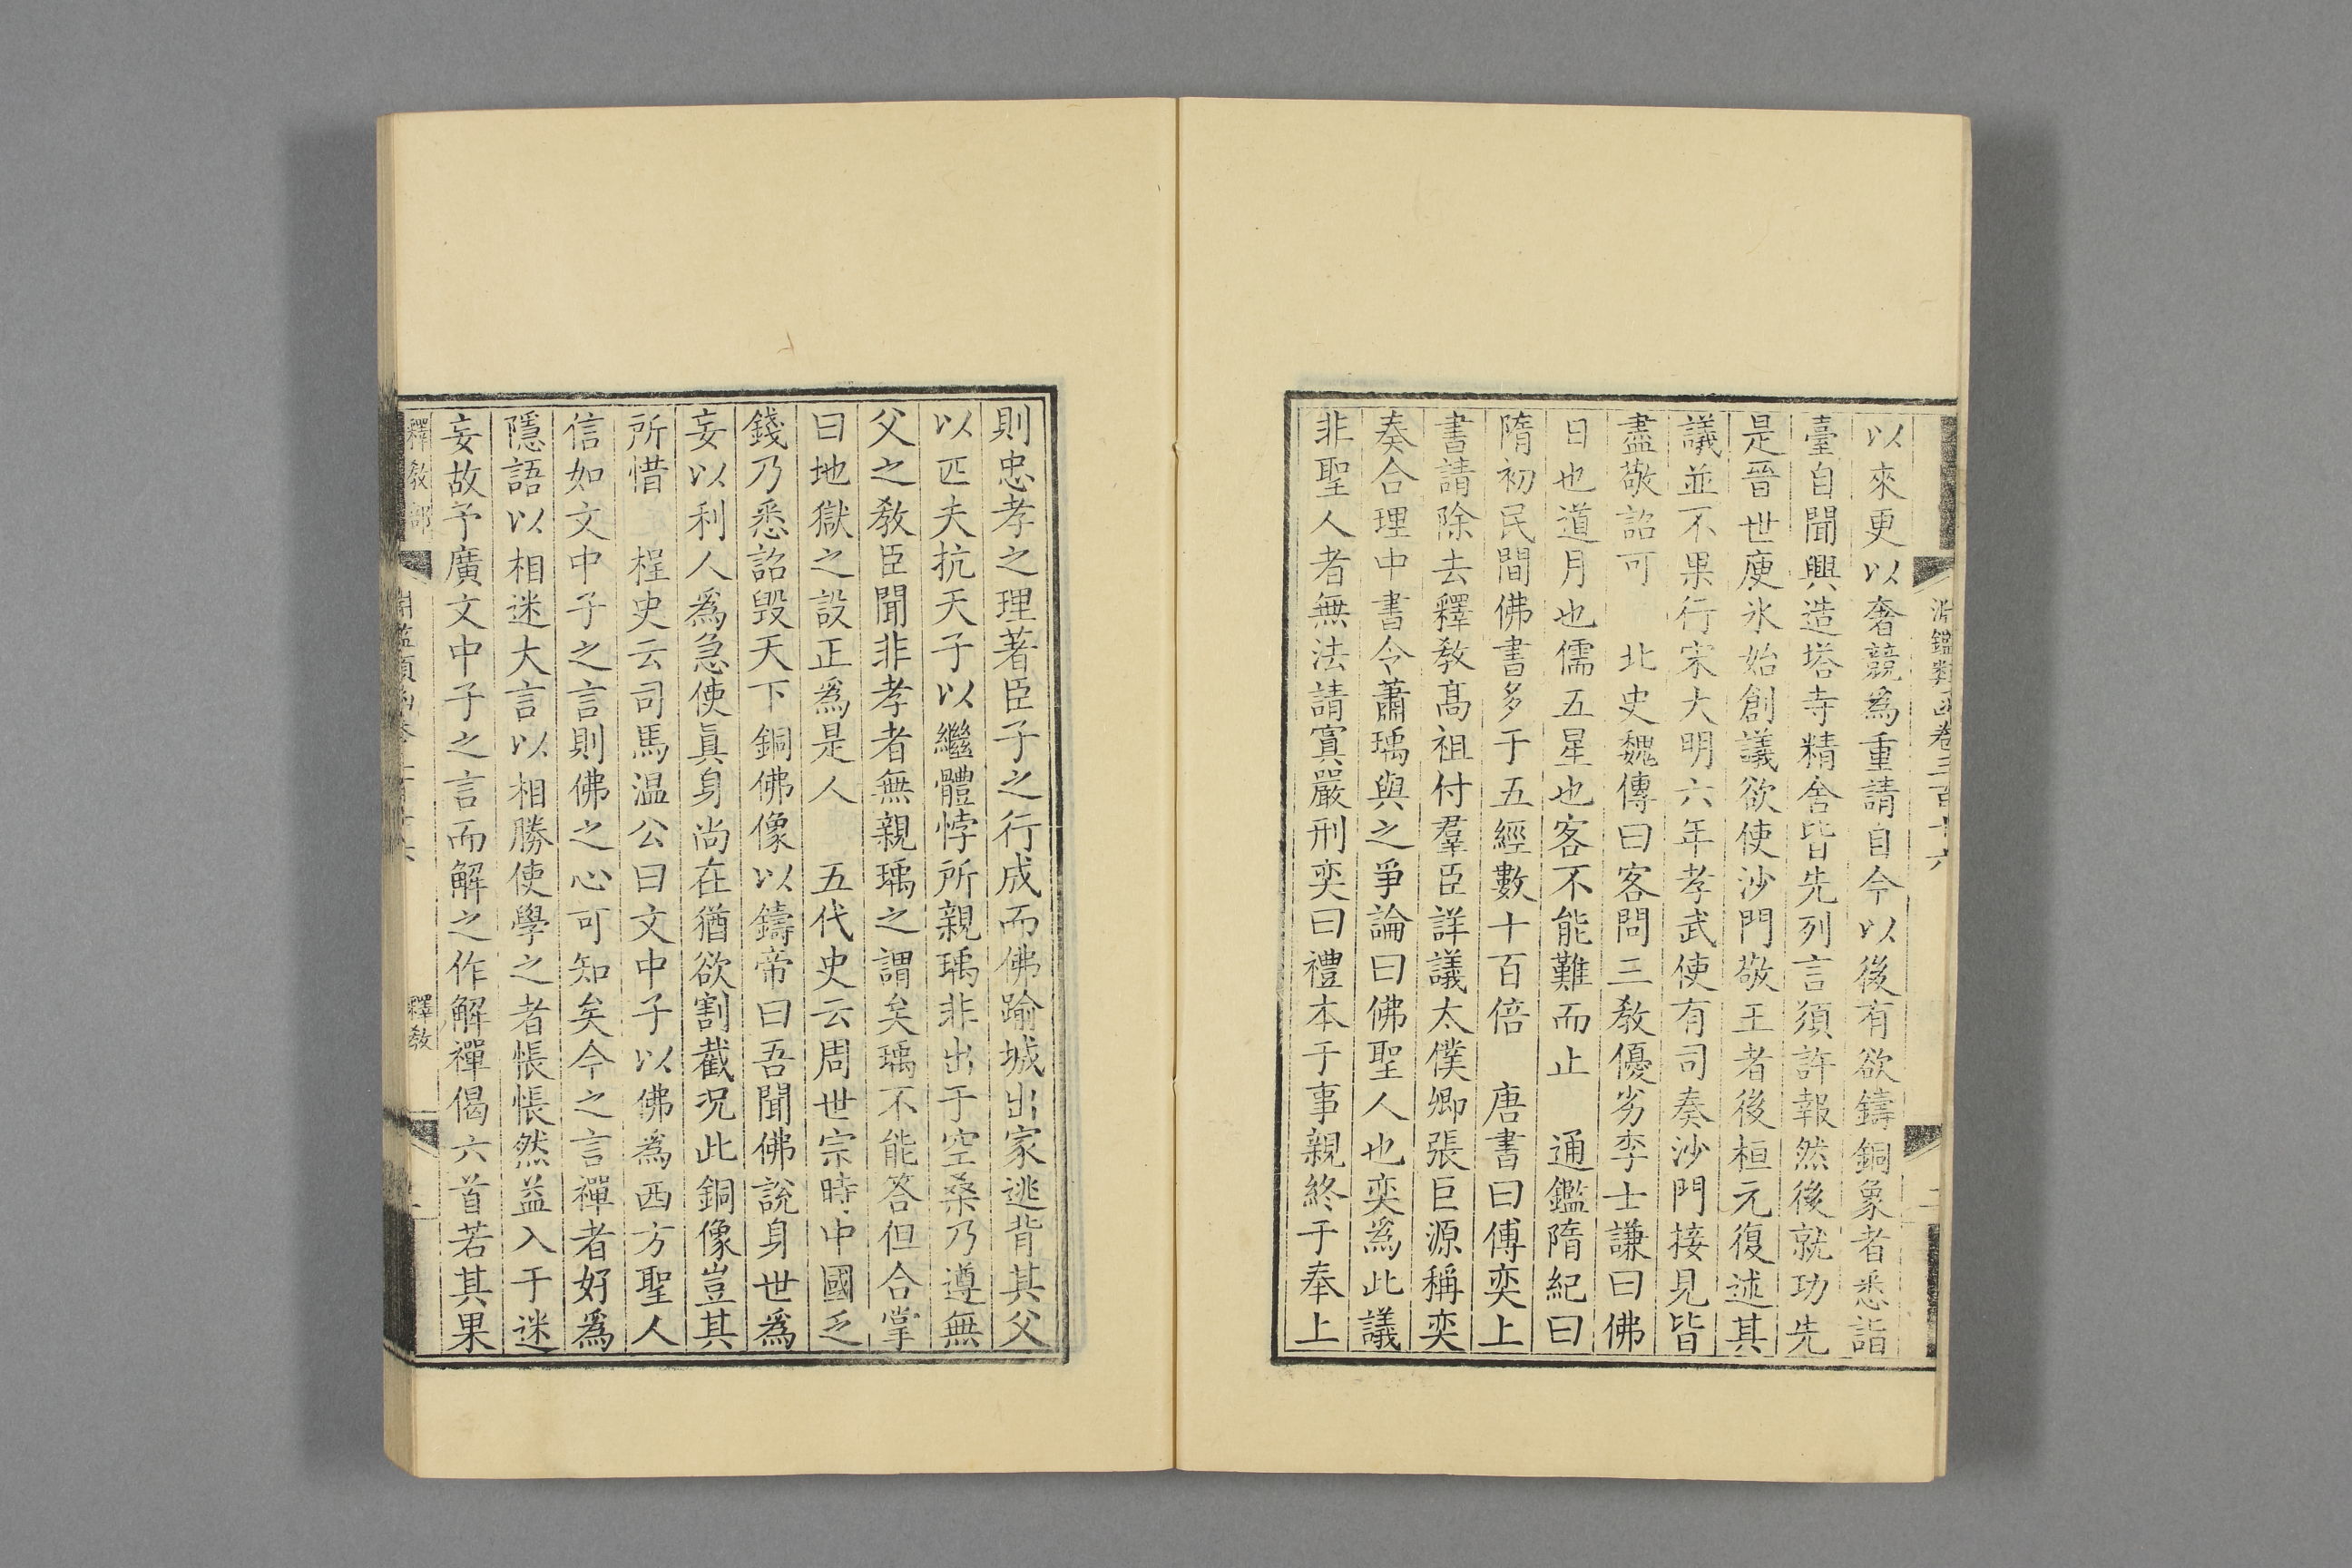 淵鑑類函卷三百十六
以來更以奢競爲重請自今以後有欲鑄銅象者悉詣
臺自聞興造塔寺精舍皆先列言須許報然後就功先
是晉世庾氷始創議欲使沙門敬王者後桓元復述其
議並不果行宋大明六年孝武使有司奏沙門接見皆
盡敬詔可　北史魏傳曰客問三教優劣李士謙曰佛
日也道月也儒五星也客不能難而止　通鑑隋紀曰
隋初民間佛書多于五經數十百倍　唐書曰傅奕上
書請除去釋敎高祖付羣臣詳議太僕卿張巨源稱奕
奏合理中書令蕭瑀與之爭論曰佛聖人也奕爲此議
非聖人者無法請寘嚴刑奕曰禮本于事親終于奉上
則忠孝之理著臣子之行成而佛踰城出家逃背其父
以匹夫抗天子以繼體悖所親瑀非出于空桑乃遵無
父之敎臣聞非孝者無親瑀之謂矣瑀不能答但合掌
曰地獄之設正爲是人　五代史云周世宗時中國乏
錢乃悉詔毀天下銅佛像以鑄帝曰吾聞佛說身世爲
妄以利人爲急使眞身尚在猶欲割截況此銅像豈其
所惜　桯史云司馬温公曰文中子以佛爲西方聖人
信如文中子之言則佛之心可知矣今之言禪者好爲
隱語以相迷大言以相勝使學之者悵悵然益入于迷
妄故予廣文中子之言而解之作解禪偈六首若其果
釋敎部
釋敎